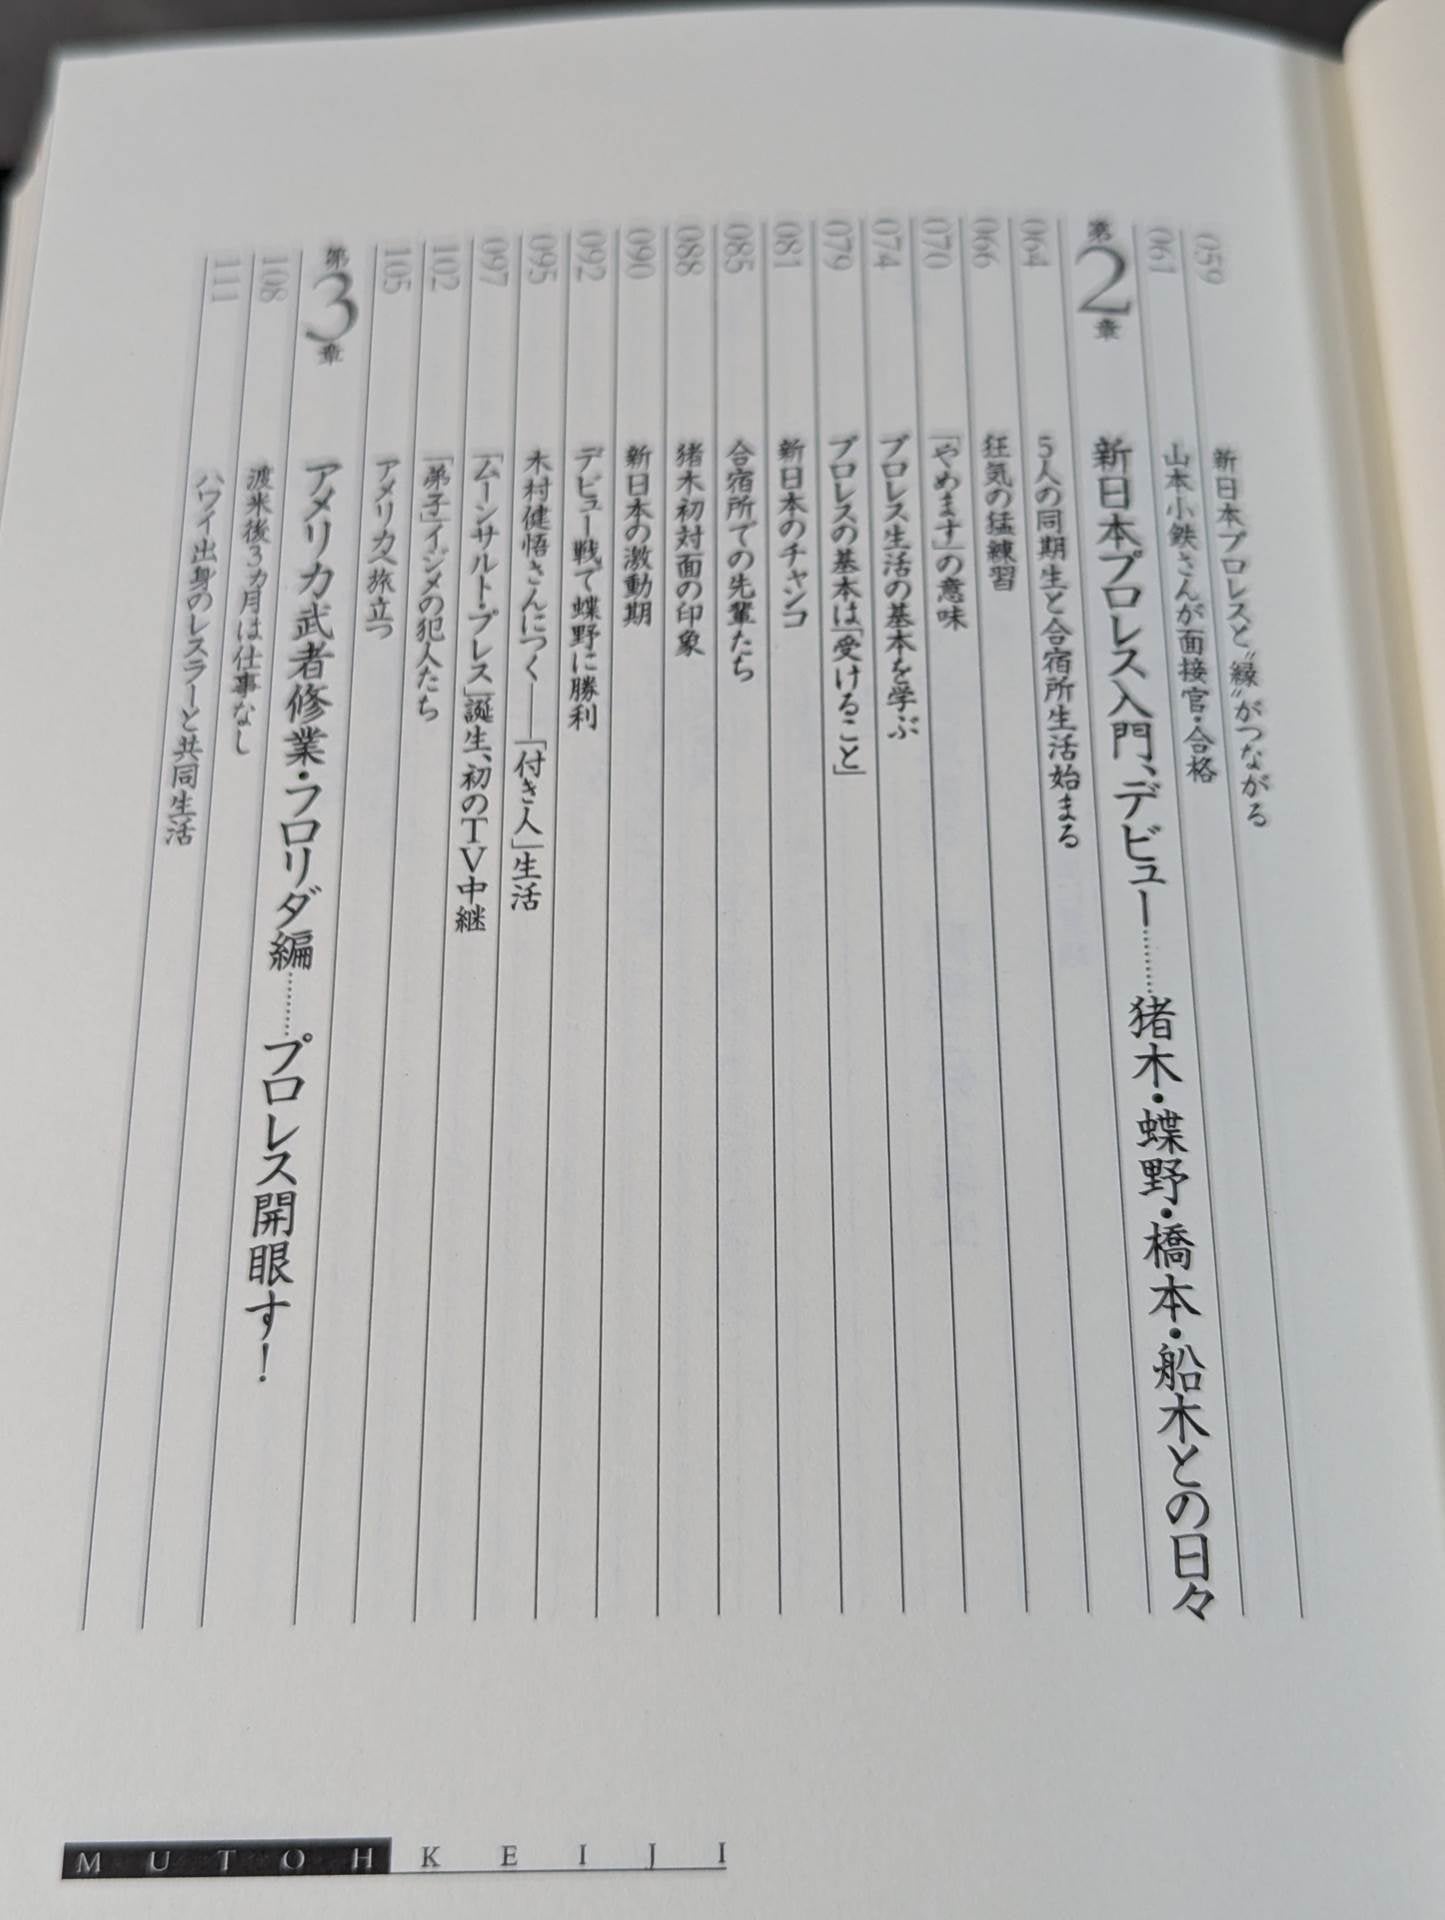 059 新日本プロレスと〝縁〟がつながる
061 山本小鉄さんが面接官・合格
第2章 新日本プロレス入門、デビュー………猪木・蝶野・橋本・船木との日々
064 5人の同期生と合宿所生活始まる
066 狂気の猛練習
070 「やめます」の意味
074 プロレス生活の基本を学ぶ
079 プロレスの基本は「受けること」
081 新日本のチャンコ
085 合宿所での先輩たち
088 猪木初対面の印象
090 新日本の激動期
092 デビュー戦で蝶野に勝利
095 木村健悟さんにつく――「付き人」生活
097 「ムーンサルト・プレス」誕生、初のTV中継
102 「弟子」イジメの犯人たち
105 アメリカへ旅立つ
第3章 アメリカ武者修業・フロリダ編………プロレス開眼す！
108 渡米後3カ月は仕事なし
111 ハワイ出身のレスラーと共同生活
MUTOH KEIJI